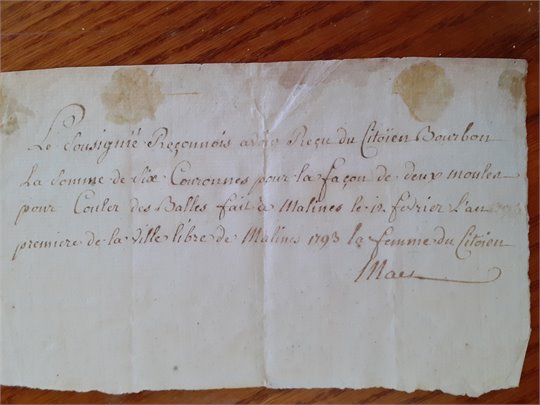 Le Sousignié Reçonnois avoir Reçu du Citöïen Bourbon
La Somme de Six Couronnes pour la façon de deux moules
pour Couler des Balles fait a Malines le 12 fevrier L'an
premiere de la Ville libre de Malines 1793 la femme du Citöïen
Maes